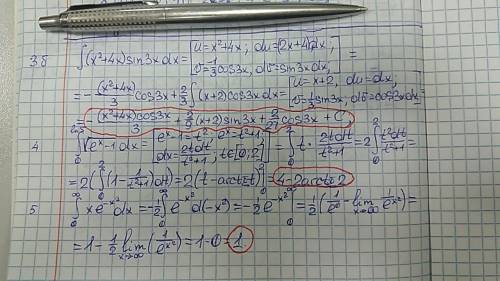 3б ∫(x²+4x)sin3x dx = [u=x²+4x, du=(2x+4)dx, v=-1/3 cos3x, dv=sin3x dx,] =
= -(x²+4x)/3 cos3x + 2/3 ∫(x+2)cos3x dx = [u=x+2, du=dx, v=1/3 sin3x, dv=cos3x dx] =
= -(x²+4x)cos3x/3 + 2/9 (x+2)sin3x + 2/27 cos3x + C,
4 ∫√(eˣ-1) dx = [eˣ-1=t², eˣ=t²+1, dx=2tdt/(t²+1), t∈[0;2]] = ∫₀² t · 2tdt/(t²+1) = 2∫₀² t²dt/(t²+1) =
= 2(∫₀²(1-1/(t²+1))dt) = 2(t-arctg t)|₀² = 4-2arctg2
5 ∫₀^∞ x e^(-x²) dx = -1/2 ∫₀^∞ e^(-x²) d(-x²) = -1/2 e^(-x²)|₀^∞ = 1/2 (1/e⁰ - lim x→∞ 1/e^(x²)) =
= 1 - 1/2 lim x→∞ (1/e^(x²)) = 1-0 = 1